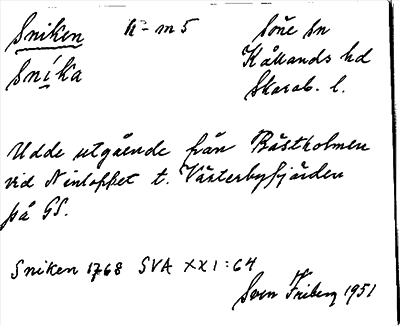 Sniken K-m5 Söne sn
Snika Kållands hd
Skarab. l.
Udde utgående från Båstholmen
vid N inloppet t. Västerbyfjärden
på GS.
Sniken 1768 SVA XXI:64
Sven Friberg 1951